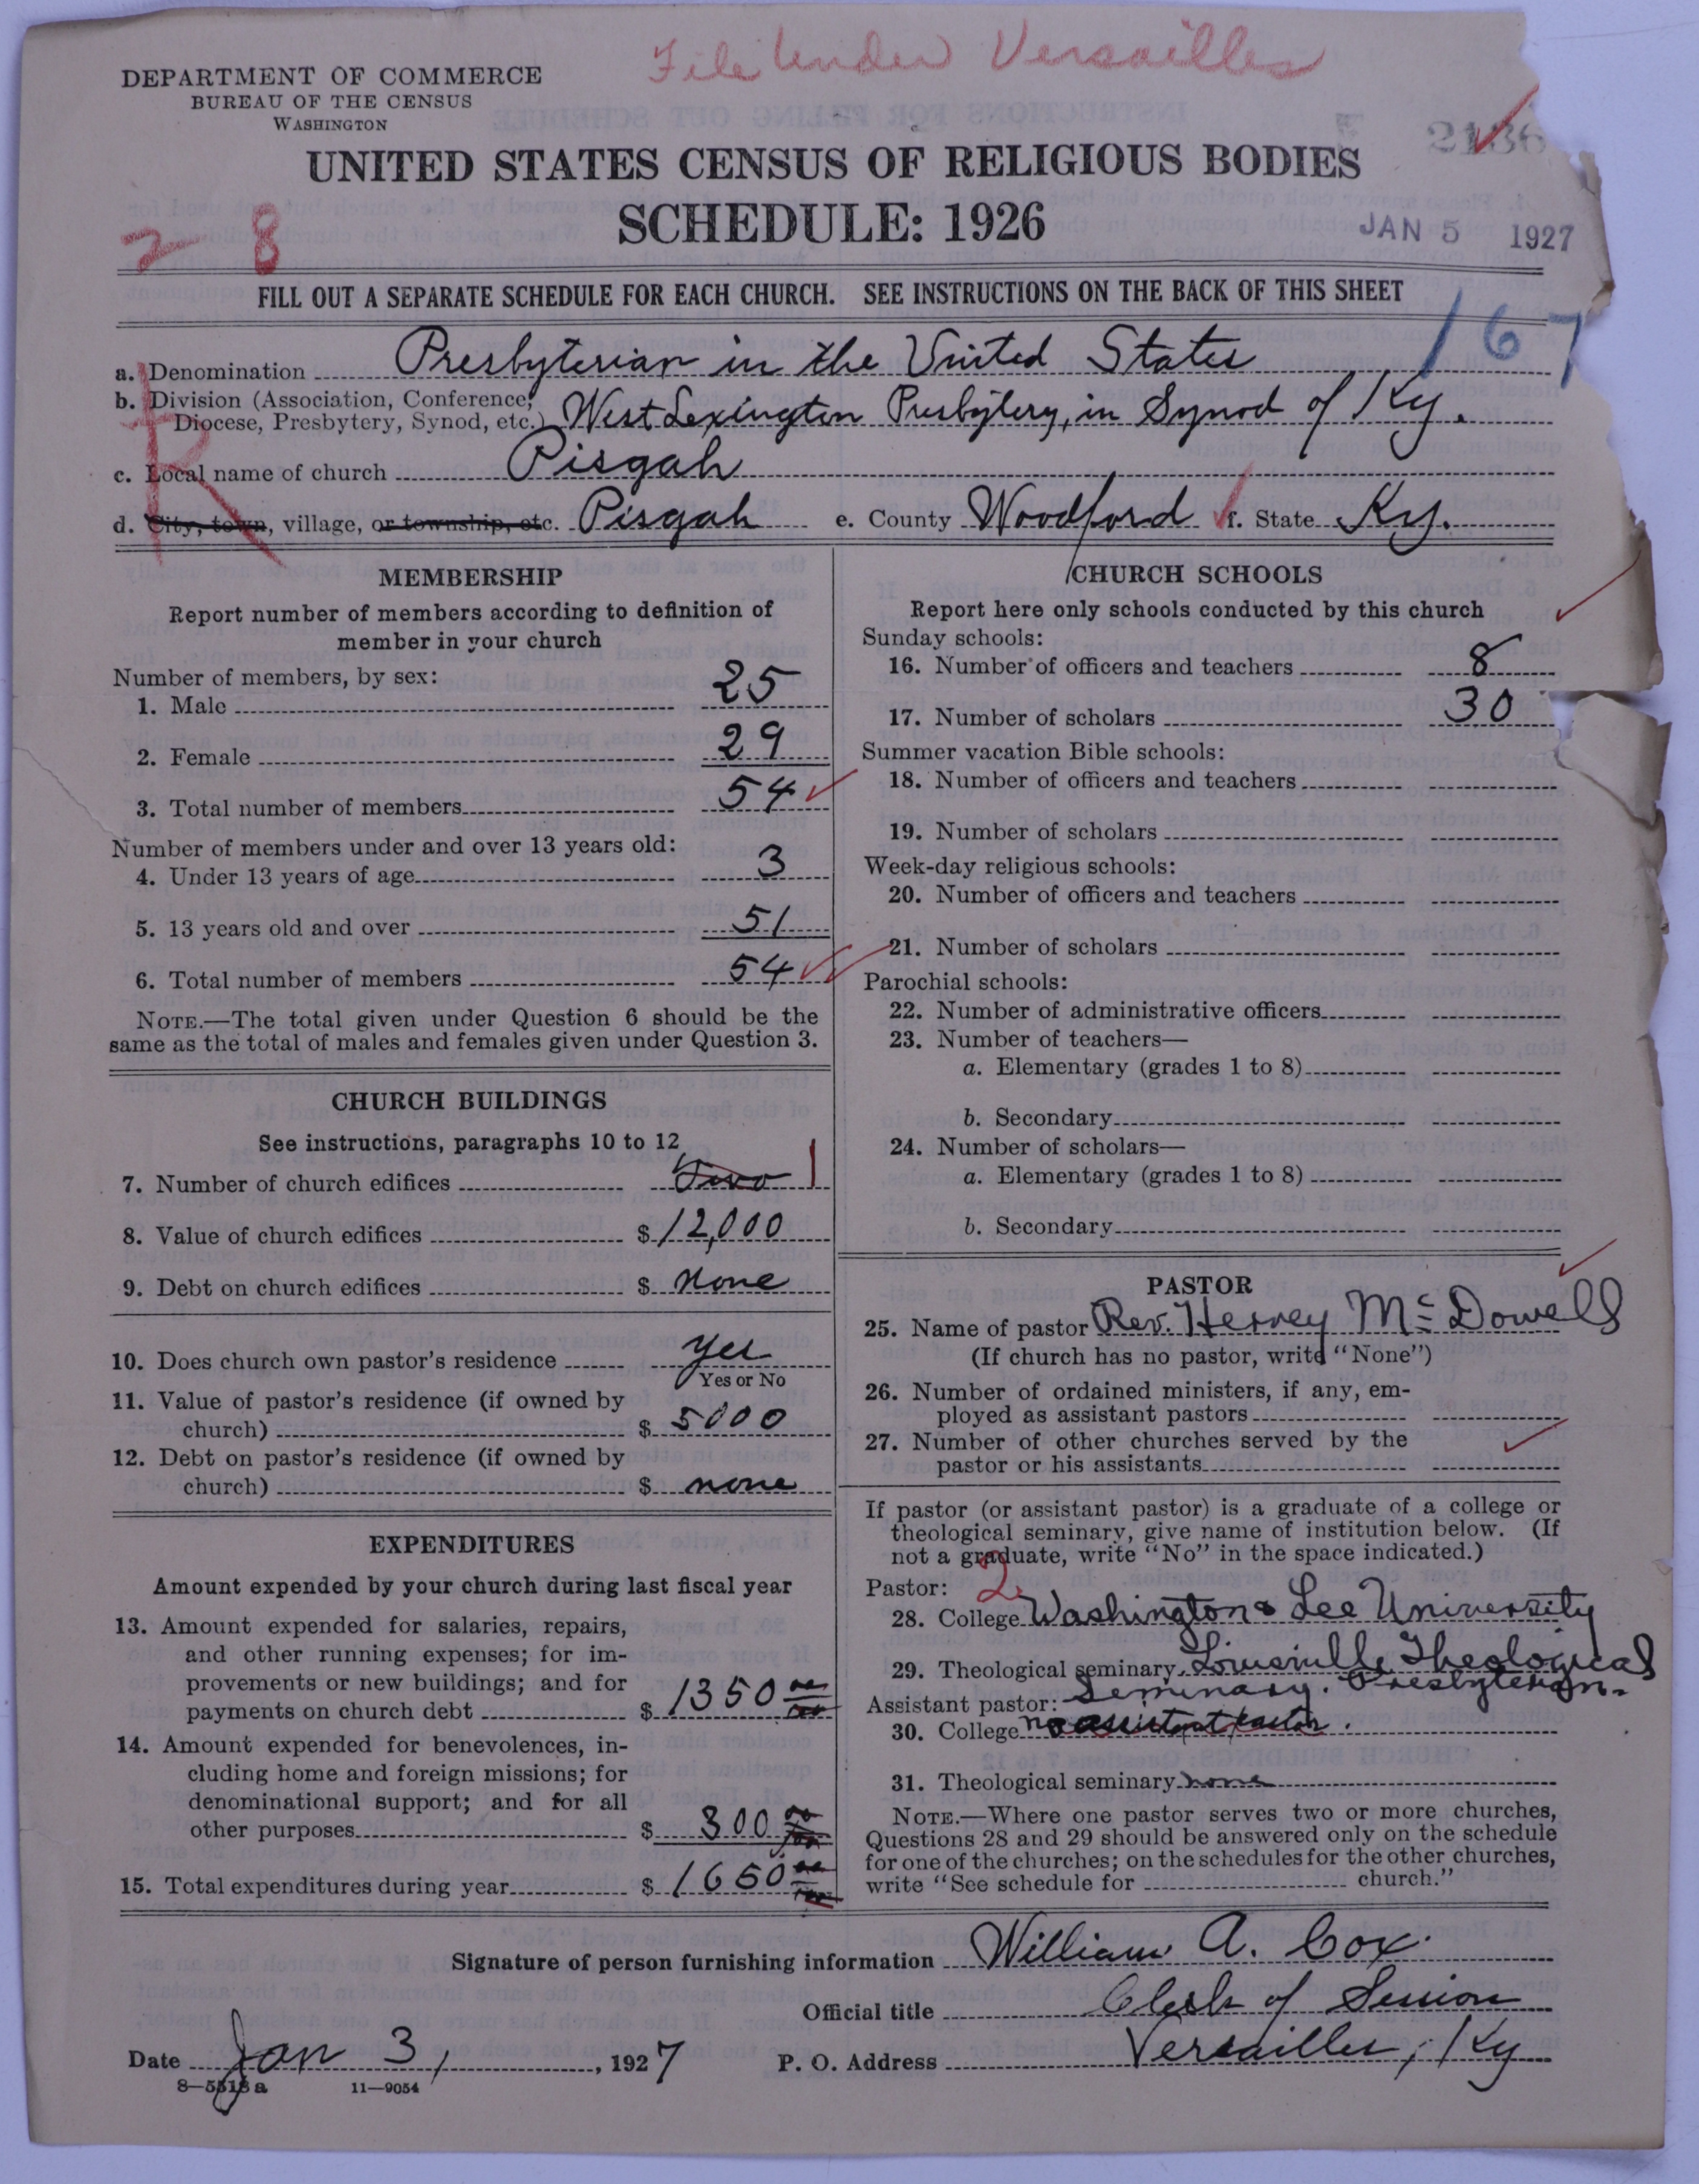 File Under Versailles
DEPARTMENT OF COMMERCE
BUREAU OF THE CENSUS
WASHINGTON
2136
UNITED STATES CENSUS OF RELIGIOUS BODIES
SCHEDULE: 1926
JAN 5 1927
2 8
FILL OUT A SEPARATE SCHEDULE FOR EACH CHURCH. SEE INSTRUCTIONS ON THE BACK OF THIS SHEET
167
R
a. Denomination Presbyterian in the United States
b. Division (Association, Conference,
Diocese, Presbytery, Synod, etc.) West Lexington Presbytery, in Synod of Ky.
c. Local name of church Pisgah
d. City, town, village, or township, etc. Pisgah e. County Woodford f. State Ky.
MEMBERSHIP
Report number of members according to definition of
member in your church
Number of members, by sex:
1. Male 25
2. Female 29
3. Total number of members 54
Number of members under and over 13 years old:
4. Under 13 years of age 3
5. 13 years old and over 51
6. Total number of members 54
NOTE.—The total given under Question 6 should be the
same as the total of males and females given under Question 3.
CHURCH BUILDINGS
See instructions, paragraphs 10 to 12
7. Number of church edifices Two 1
8. Value of church edifices $ 12,000
9. Debt on church edifices $ none
10. Does church own pastor's residence yes
Yes or No
11. Value of pastor's residence (if owned by
church) $ 5000
12. Debt on pastor's residence (if owned by
church) $ none
EXPENDITURES
Amount expended by your church during last fiscal year
13. Amount expended for salaries, repairs,
and other running expenses; for im-
provements or new buildings; and for
payments on church debt $ 1350
14. Amount expended for benevolences, in-
cluding home and foreign missions; for
denominational support; and for all
other purposes $ 300
15. Total expenditures during year $ 1650
CHURCH SCHOOLS
Report here only schools conducted by this church
Sunday schools:
16. Number of officers and teachers 8
17. Number of scholars 30
Summer vacation Bible schools:
18. Number of officers and teachers
19. Number of scholars
Week-day religious schools:
20. Number of officers and teachers
21. Number of scholars
Parochial schools:
22. Number of administrative officers
23. Number of teachers—
a. Elementary (grades 1 to 8)
b. Secondary
24. Number of scholars—
a. Elementary (grades 1 to 8)
b. Secondary
PASTOR
25. Name of pastor Rev. Hervey McDowell
(If church has no pastor, write "None")
26. Number of ordained ministers, if any, em-
ployed as assistant pastors
27. Number of other churches served by the
pastor or his assistants
If pastor (or assistant pastor) is a graduate of a college or
theological seminary, give name of institution below. (If
not a graduate, write "No" in the space indicated.)
Pastor: 2
28. College Washington & Lee University
29. Theological seminary Louisville Theological
Assistant pastor: Seminary. Presbyterian.
30. College no assistant pastor.
31. Theological seminary none
NOTE.—Where one pastor serves two or more churches,
Questions 28 and 29 should be answered only on the schedule
for one of the churches; on the schedules for the other churches,
write "See schedule for church."
Signature of person furnishing information William A. Cox
Official title Clerk of Session
Date Jan 3, 1927 P. O. Address Versailles, Ky
8—5513a 11—9054